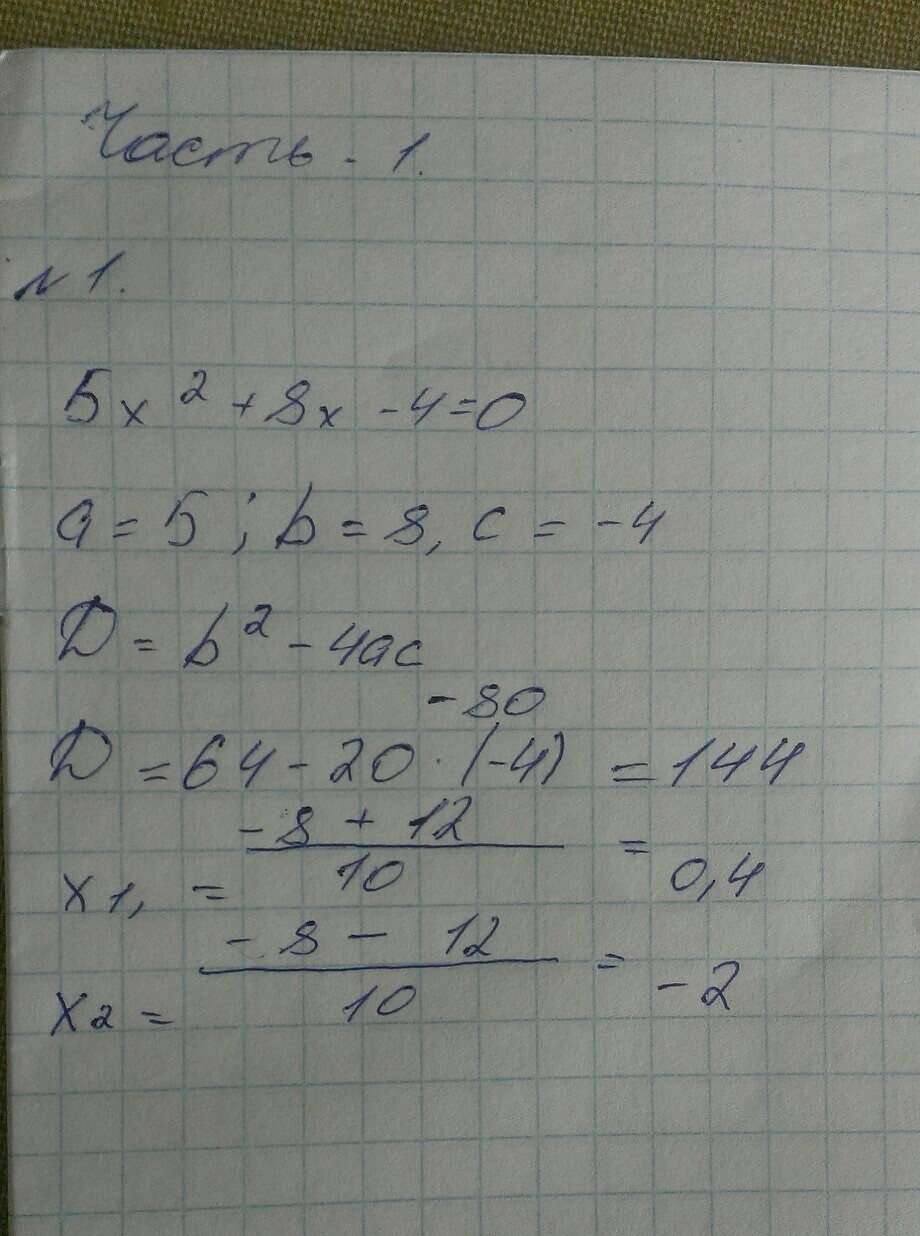 Часть - 1.
№1.
5x² + 8x - 4 = 0
a = 5; b = 8, c = -4
D = b² - 4ac
-80
D = 64 - 20 · (-4) = 144
x1, = -8 + 12 / 10 = 0,4
x2 = -8 - 12 / 10 = -2